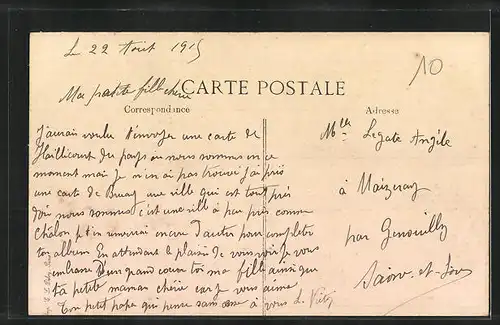 Le 22 Aout 1915
10
Ma petite fille chérie
CARTE POSTALE
Correspondance
Adresse
J'aurais voulu t'envoyer une carte de
Haillicourt du pays ou nous sommes en ce
moment mai je n'en ai pas trouvé j'ai pris
une carte de Bruay une ville qui est tout près
d'où nous sommes c'est une ville à peu près comme
Châlon je t'en enverrai encore d'autres pour completer
ton album En attendant le plaisir de vous voir je vous
embrasse d'un grand coeur toi ma fille ainsi que
ta petite maman chérie car je vous aime
Ton petit papa qui pense sans cesse à vous L.
Mlle Legate Angèle
à Maizeray
par Genouilly
Saône-et-Loire